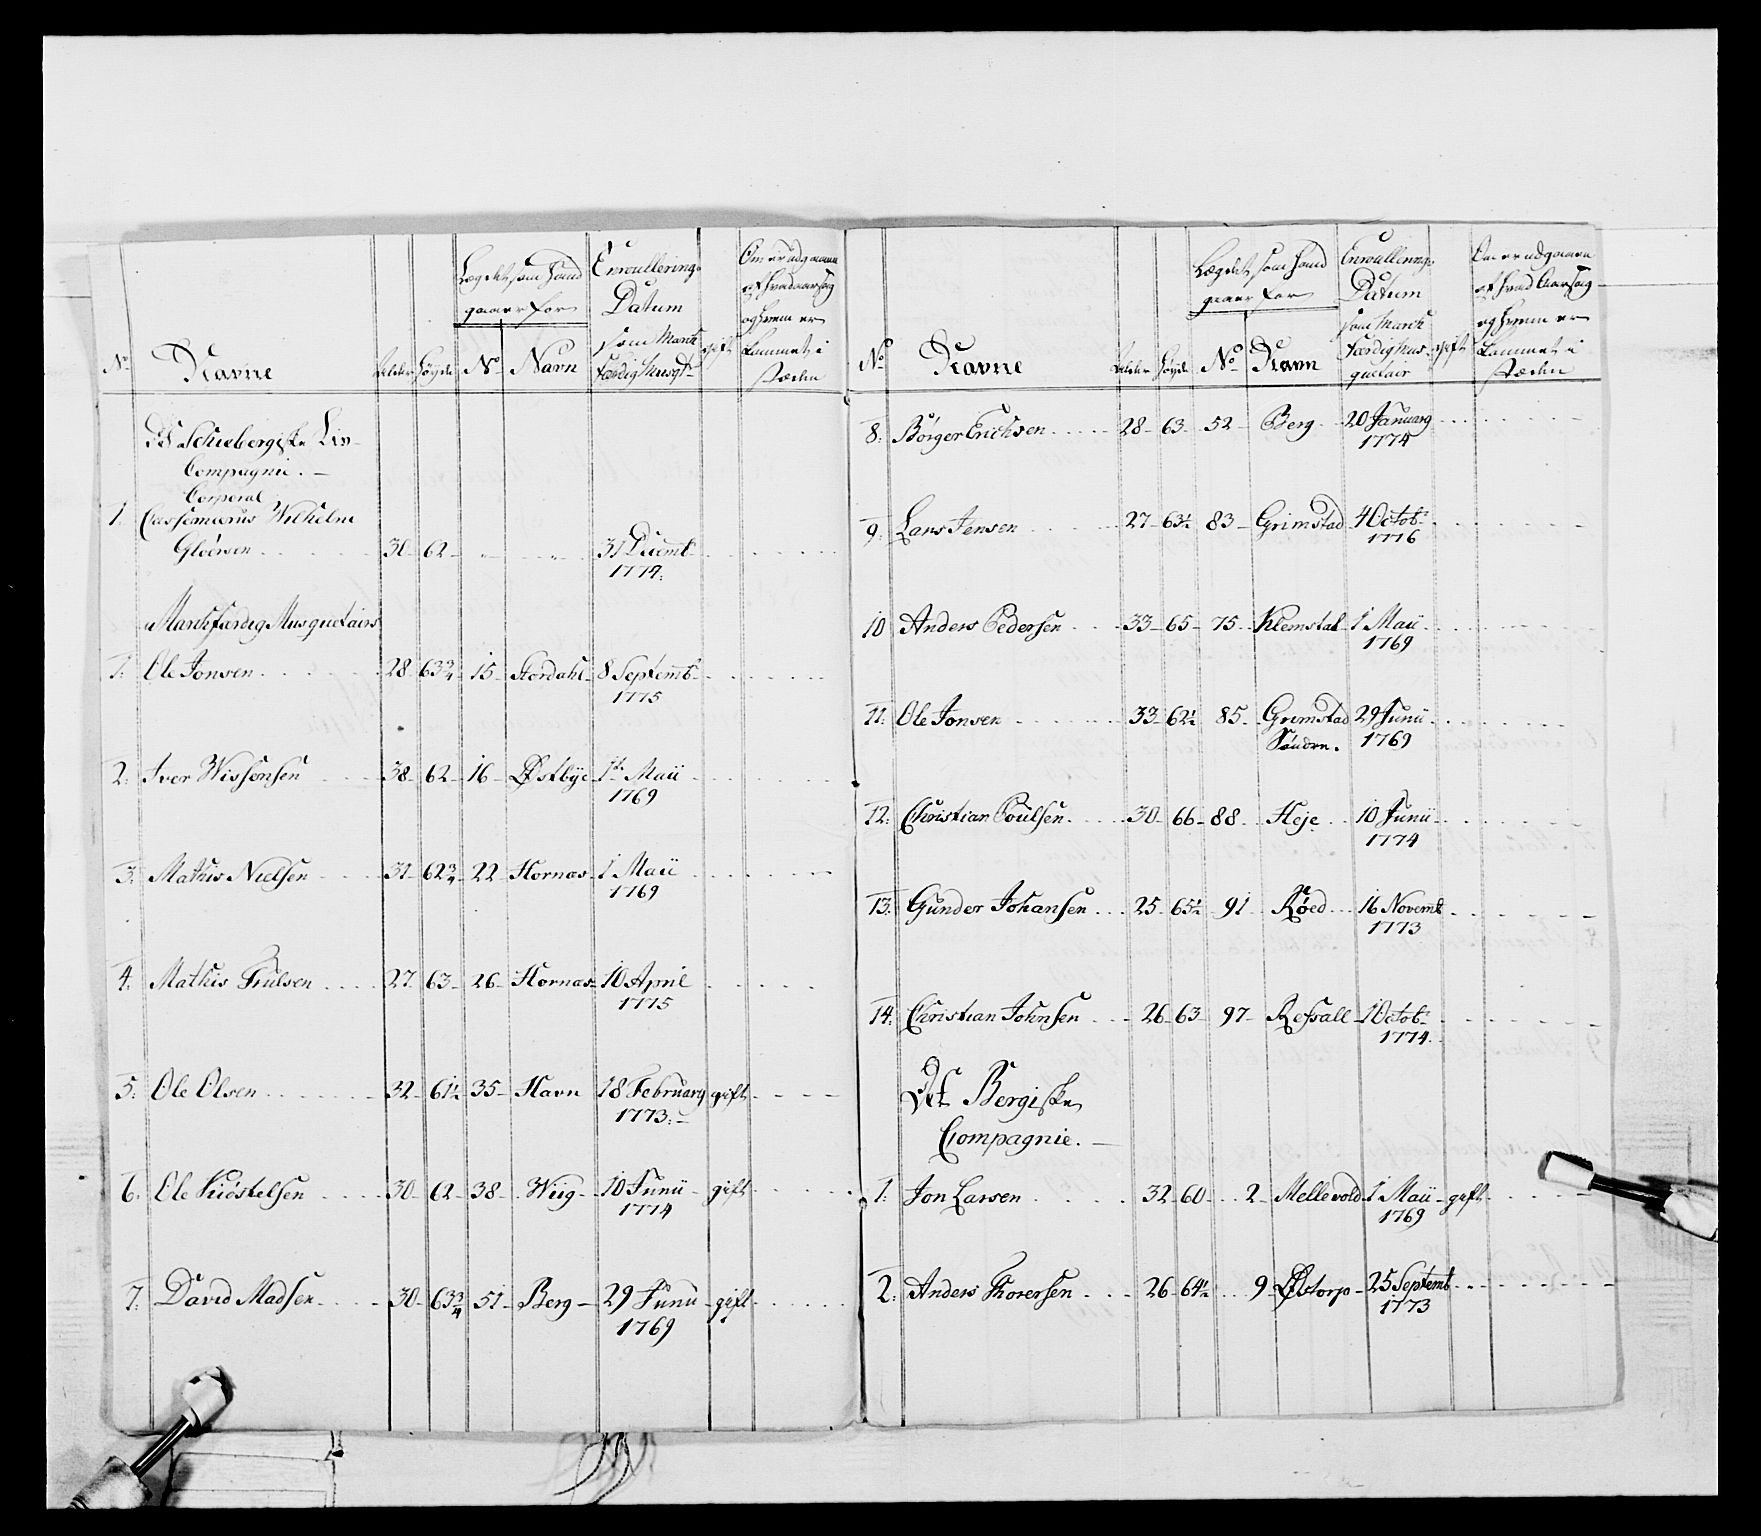 Lægdet som hand
gaaer for
Enroullerings
Datum
som March
færdig Musqt
gift
Om er udgaaen
af hvad aarsag
og hvem er
kommet i
stæden
No
Navne
Alder
Høyde
No
Navn
Det Schiebergiske Liv
Compagnie.
Corporal
1. Cassemierus Wilhelm
Gløersen 30 62 31 Decemb
1774.
Marchfærdig Musquetairs
1. Ole Jonsen 28 63 3/4 15 Stordahl 8 Septemb
1775
2. Iver Wissensen 38 62 16 Østbye 1te Maii
1769
3. Mathis Nielsen 31 62 3/4 22 Hornas 1 Maii
1769
4. Mathis Trulsen 27 63 26 Hornas 10 April
1775
5. Ole Olsen 32 61 1/2 35 Havn 18 February gift
1773.
6. Ole Kiøstelsen 30 62 38 Wiig 10 Junii gift
1774
7. David Madsen 30 63 3/4 51 Berg 29 Junii gift
1769
Lægdet som hand
gaaer for
Enroullerings
Datum
som March
færdig Mus-
quetair
gift
Om er udgaaen
af hvad Aarsag
og hvem er
kommet i
stæden
No
Navne
Alder
Høyde
No
Navn
8. Børger Erichsen 28 63 52 Berg 20 January
1774
9. Lars Jensen 27 63 1/2 83 Grimstad 4 Octobr
1776
10 Anders Pedersen 33 65 75 Klemstal 1 Maii
1769
11. Ole Jonsen 33 62 1/2 85 Grimstad 29 Junii
Søndre. 1769
12. Christian Poulsen 30 66 88 Heje 10 Junii
1774
13. Gunder Johansen 25 65 1/2 91 Røed 16 Novemb
1773
14. Christian Johnsen 26 63 97 Refsall 1 Octobr
1774.
Det Bergiske
Compagnie.
1. Jon Larsen 32 60 2 Mellevold 1 Maii gift
1769
2. Anders Thoresen 26 64 1/2 9 Østorp 25 Septemb
1773